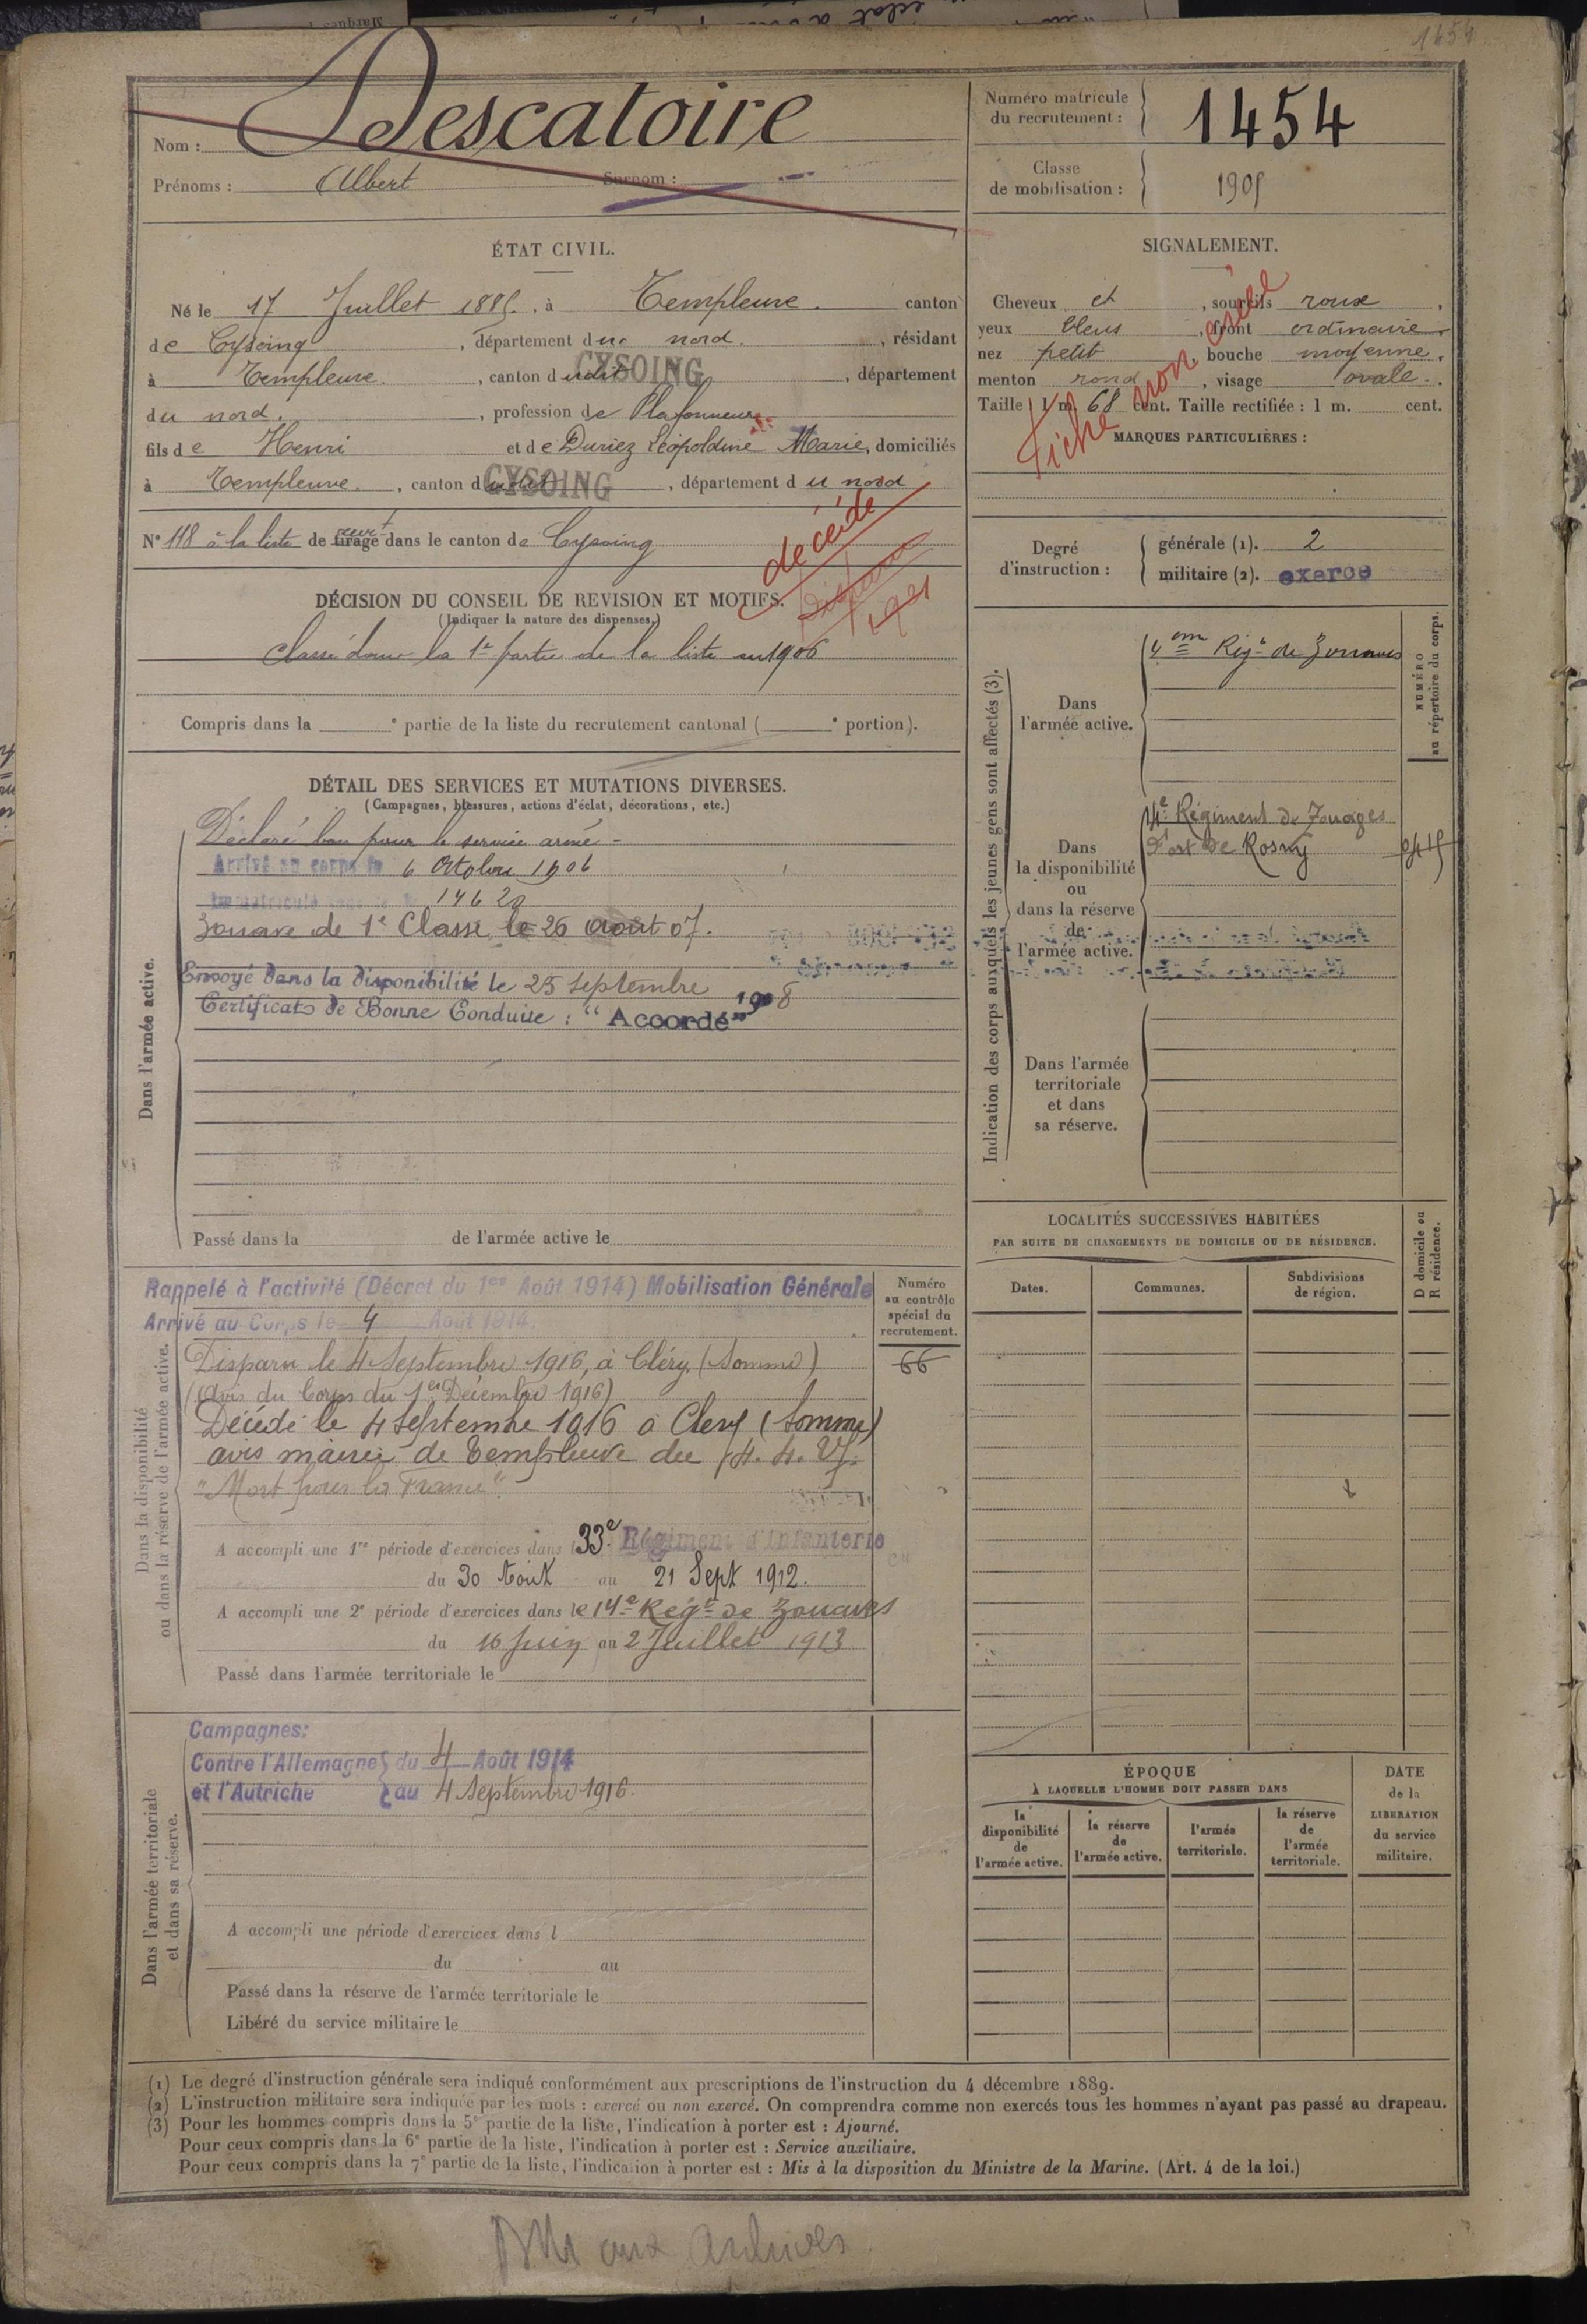 1454
Nom : Descatoire
Prénoms : Albert Surnom :
Numéro matricule du recrutement : 1454
Classe de mobilisation : 1905
ÉTAT CIVIL.
Né le 17 Juillet 1885, à Templeuve. canton
de Cysoing, département du nord., résidant
à Templeuve., canton dudit CYSOING, département
du nord., profession de Plafonneur
fils de Henri et de Duriez Léopoldine Marie, domiciliés
à Templeuve., canton dudit CYSOING, département du nord
N° 118 à la liste de recrt tirage dans le canton de Cysoing
décédé
Disparu
1921
DÉCISION DU CONSEIL DE REVISION ET MOTIFS.
(Indiquer la nature des dispenses.)
Classé dans la 1e partie de la liste en 1906
Compris dans la e partie de la liste du recrutement cantonal ( e portion).
SIGNALEMENT.
Cheveux et, sourcils roux,
yeux bleus, front ordinaire,
nez petit, bouche moyenne,
menton rond, visage ovale.
Taille : 1 m. 68 cent. Taille rectifiée : 1 m. cent.
MARQUES PARTICULIÈRES :
Fiche non
Degré d'instruction :
générale (1). 2
militaire (2). exercé
DÉTAIL DES SERVICES ET MUTATIONS DIVERSES.
(Campagnes, blessures, actions d'éclat, décorations, etc.)
Dans l'armée active.
Déclaré bon pour le service armé -
Arrivé au corps le 6 Octobre 1906
Immatriculé sous le n° 14620
Zouave de 1e Classe le 26 Août 07.
Envoyé dans la disponibilité le 25 septembre 1908
Certificat de Bonne Conduite : "Accordé"
Passé dans la de l'armée active le
Indication des corps auxquels les jeunes gens sont affectés (3).
NUMÉRO au répertoire du corps.
Dans l'armée active.
4eme Régt de Zouaves
Dans la disponibilité ou dans la réserve de l'armée active.
14e Régiment de Zouaves
Fort de Rosny
Dans l'armée territoriale et dans sa réserve.
Dans la disponibilité ou dans la réserve de l'armée active.
Rappelé à l'activité (Décret du 1er Août 1914) Mobilisation Générale
Arrivé au Corps le 4 Août 1914.
Numéro au contrôle spécial du recrutement.
66
Disparu le 4 Septembre 1916, à Cléry (Somme)
(Avis du Corps du 1er Décembre 1916)
Décédé le 4 septembre 1916 à Clery (Somme)
avis mairie de Templeuve du 14. 4. 21.
"Mort pour la France".
A accompli une 1re période d'exercices dans l 33e Régiment d'Infanterie
du 30 Août au 21 Sept 1912.
A accompli une 2e période d'exercices dans le 14e Régt de Zouaves
du 16 Juin au 2 Juillet 1913
Passé dans l'armée territoriale le
LOCALITÉS SUCCESSIVES HABITÉES
PAR SUITE DE CHANGEMENTS DE DOMICILE OU DE RÉSIDENCE.
Dates. Communes. Subdivisions de région. D domicile ou R résidence.
Dans l'armée territoriale et dans sa réserve.
Campagnes:
Contre l'Allemagne du 4 Août 1914
et l'Autriche au 4 Septembre 1916.
A accompli une période d'exercices dans l
du au
Passé dans la réserve de l'armée territoriale le
Libéré du service militaire le
ÉPOQUE
À LAQUELLE L'HOMME DOIT PASSER DANS
la disponibilité de l'armée active.
la réserve de l'armée active.
l'armée territoriale.
la réserve de l'armée territoriale.
DATE de la LIBERATION du service militaire.
(1) Le degré d'instruction générale sera indiqué conformément aux prescriptions de l'instruction du 4 décembre 1889.
(2) L'instruction militaire sera indiquée par les mots : exercé ou non exercé. On comprendra comme non exercés tous les hommes n'ayant pas passé au drapeau.
(3) Pour les hommes compris dans la 5e partie de la liste, l'indication à porter est : Ajourné.
Pour ceux compris dans la 6e partie de la liste, l'indication à porter est : Service auxiliaire.
Pour ceux compris dans la 7e partie de la liste, l'indication à porter est : Mis à la disposition du Ministre de la Marine. (Art. 4 de la loi.)
aux Archives